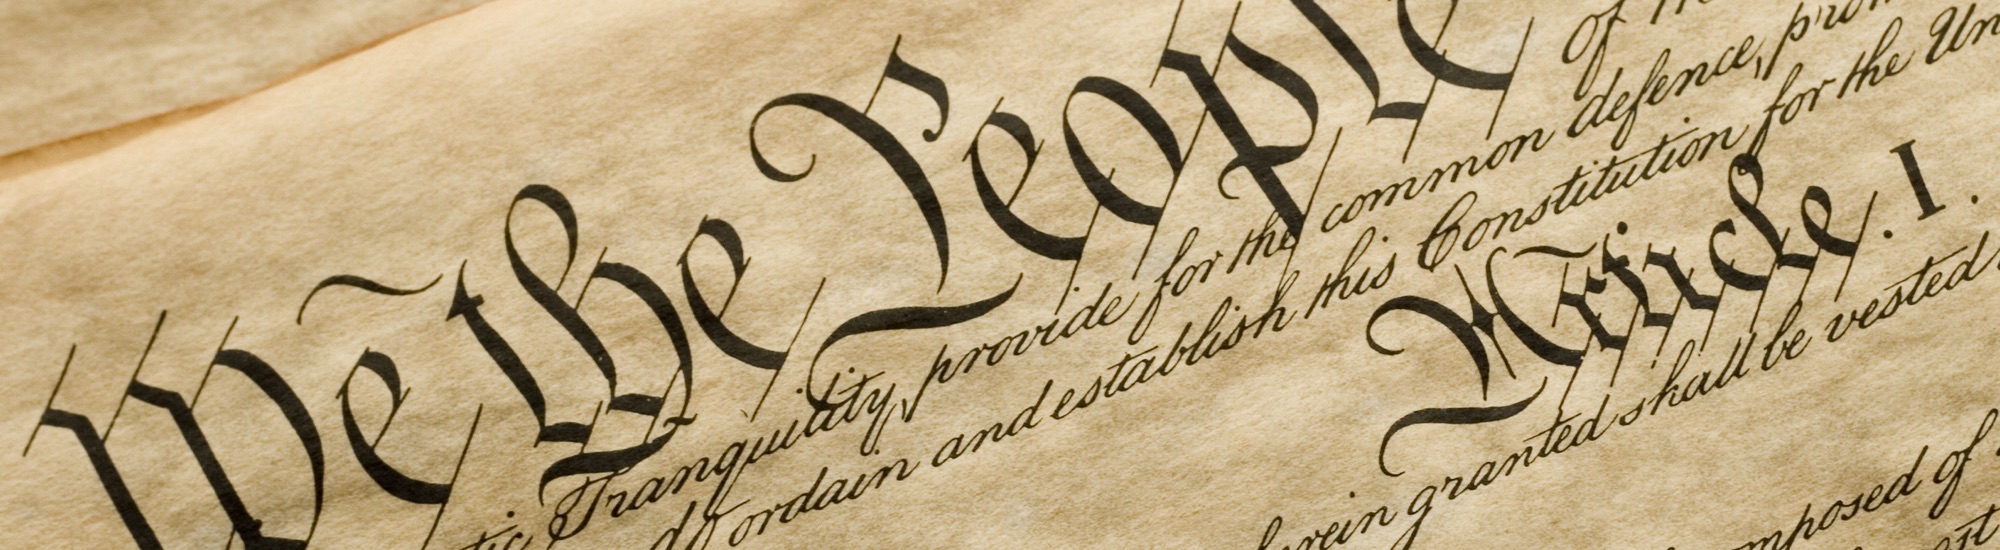 We the People
of the
Tranquility, provide for the common defence,
ordain and establish this Constitution for the
Article. I.
granted shall be vested
composed of